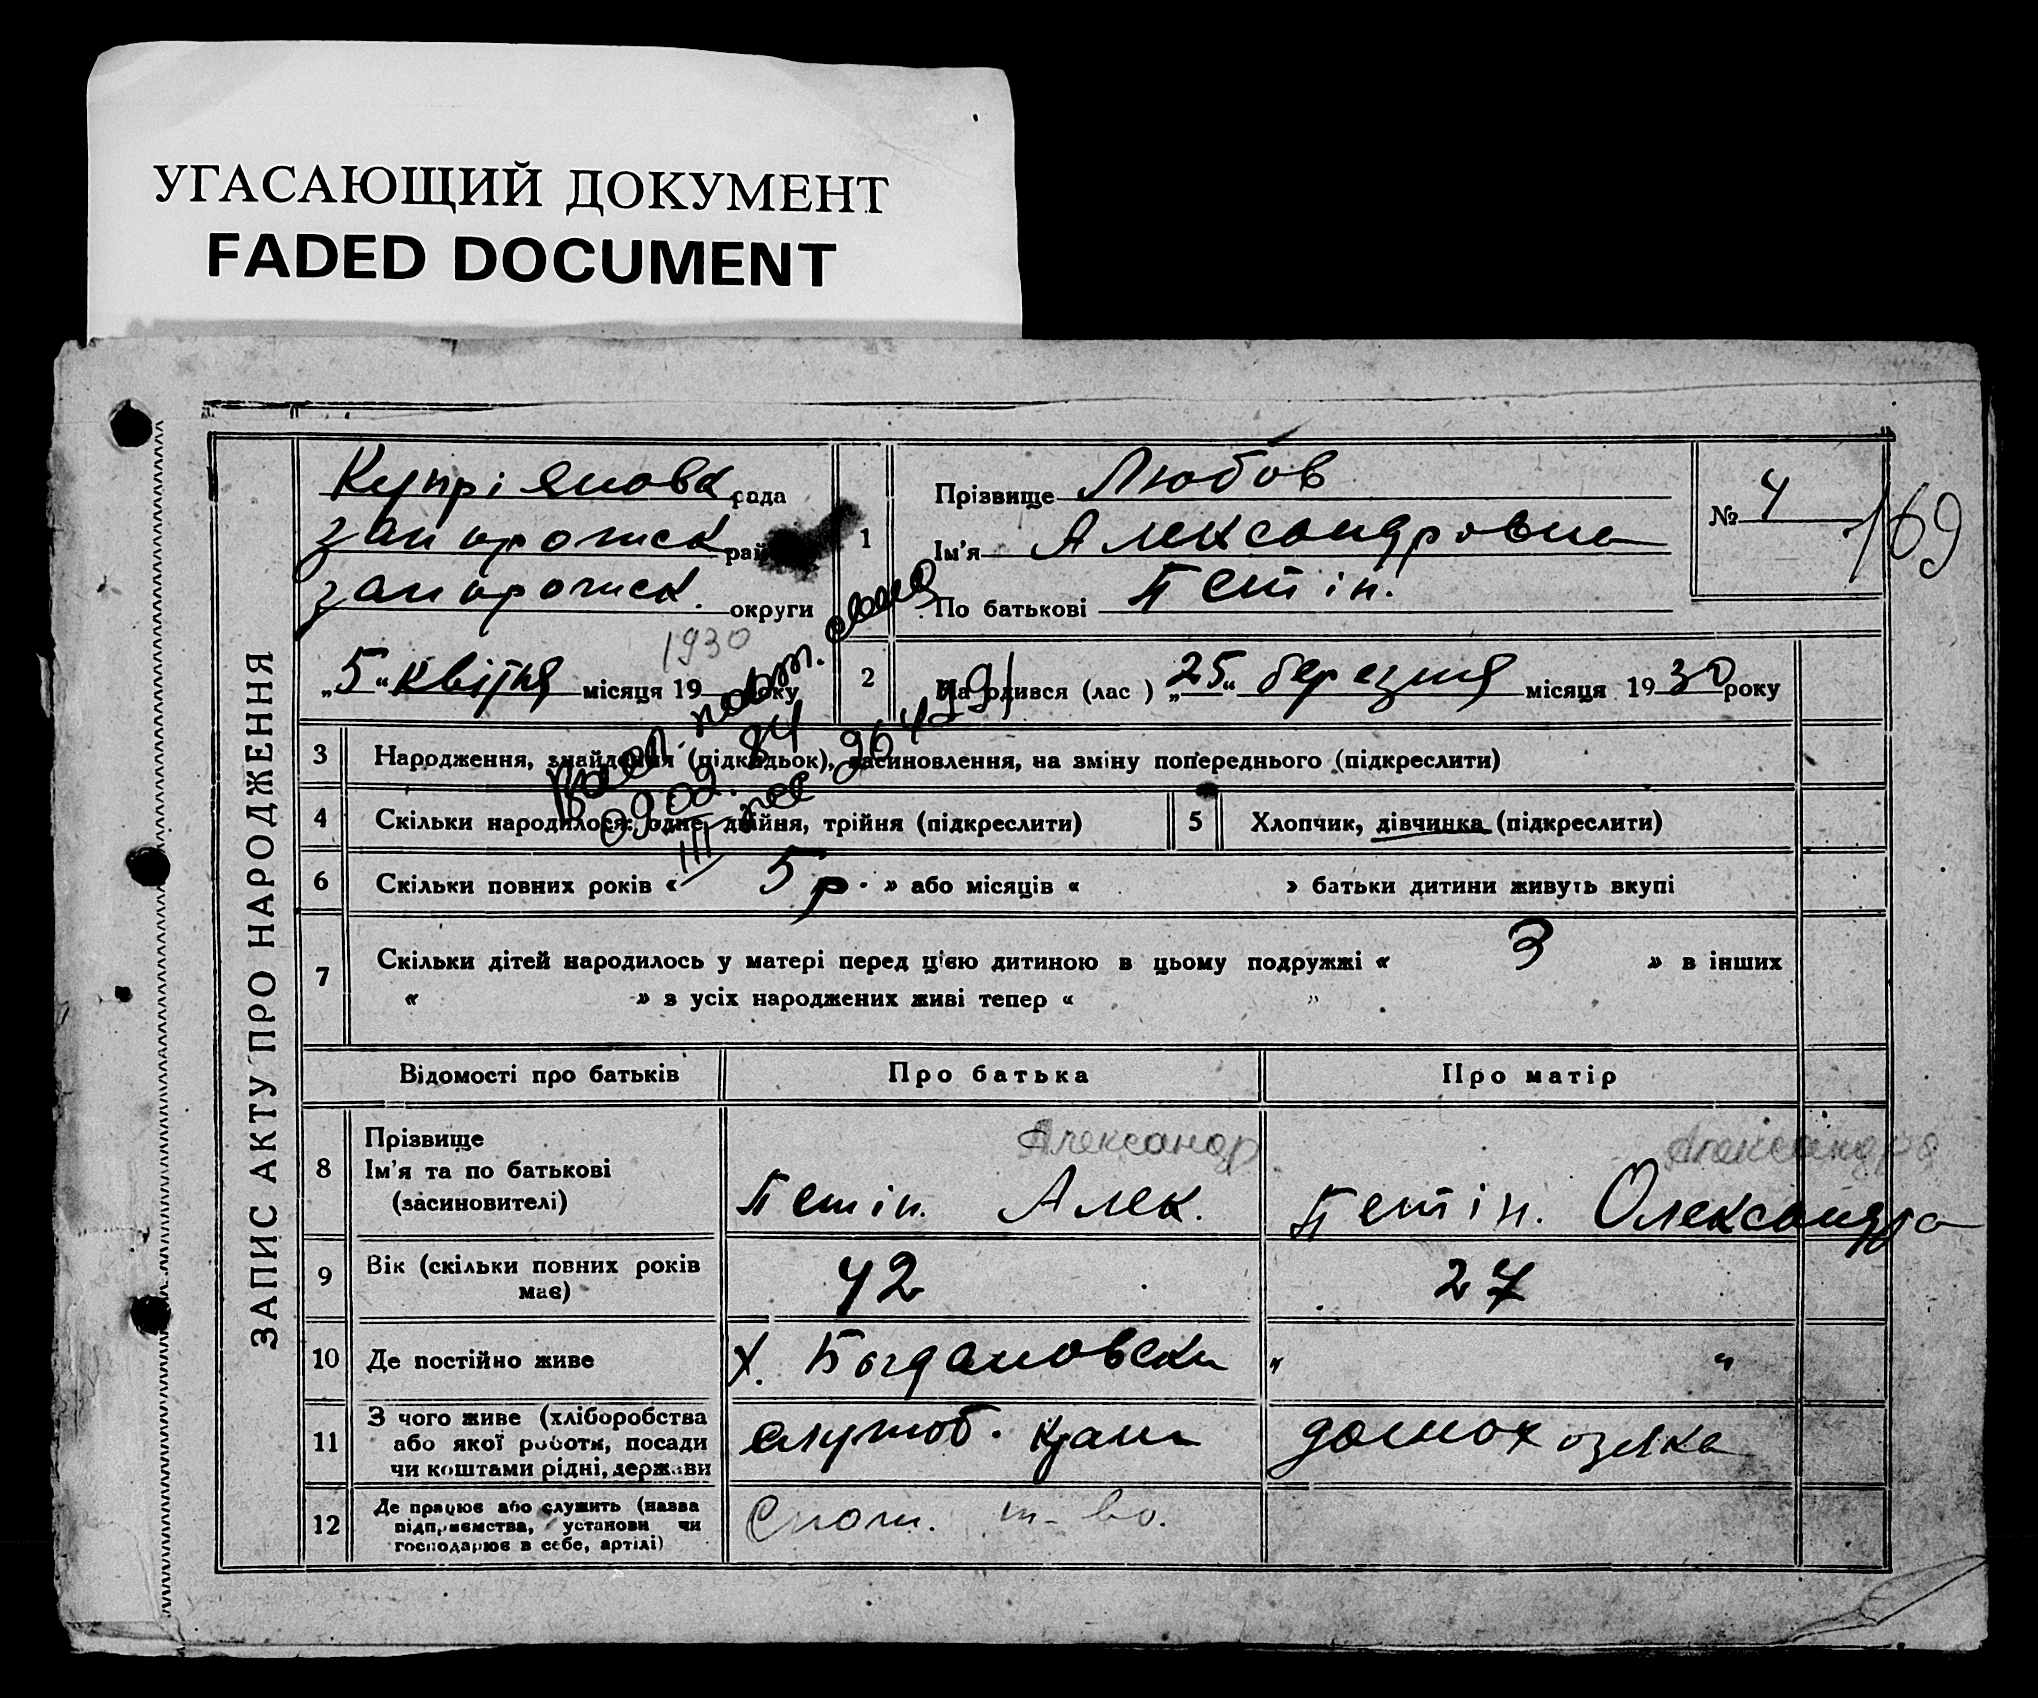 УГАСАЮЩИЙ ДОКУМЕНТ
FADED DOCUMENT
ЗАПИС АКТУ ПРО НАРОДЖЕННЯ
Купріянова рада
запорожск рай
запорожск. округи
1930
„5“ квітня місяця 19 року
1 Прізвище Любов
Ім'я Александровна
По батькові Петін.
№ 4
169
2 Народився (лас ) „25“ березня місяця 1930 року
3 Народження, знайдення (підкидьок), засиновлення, на зміну попереднього (підкреслити)
09.02. 84
4 Скільки народилося: одне, двійня, трійня (підкреслити)
5 Хлопчик, дівчинка (підкреслити)
6 Скільки повних років « 5 р. » або місяців « » батьки дитини живуть вкупі
7 Скільки дітей народилось у матері перед цією дитиною в цьому подружжі « 3 » в інших
« » з усіх народжених живі тепер « »
Відомості про батьків Про батька Про матір
8 Прізвище
Ім'я та по батькові
(засиновителі)
Александр
Петін. Алек.
Александра
Петін. Олександра
9 Вік (скільки повних років
має)
42 27
10 Де постійно живе Х. Богдановски „ “
11 З чого живе (хліборобства
або якої роботи, посади
чи коштами рідні, держави
служб. домохозяйка
12 Де працює або служить (назва
підприємства, установи чи
господарює в себе, артілі)
Спож. т-во.